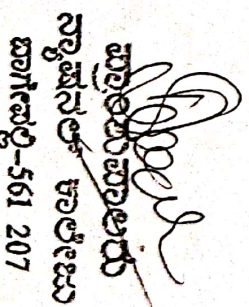 ಪ್ರಾಂಶುಪಾಲರು
ನ್ಯಾಷನಲ್ ಕಾಲೇಜು
ಬಾಗೇಪಲ್ಲಿ-561 207